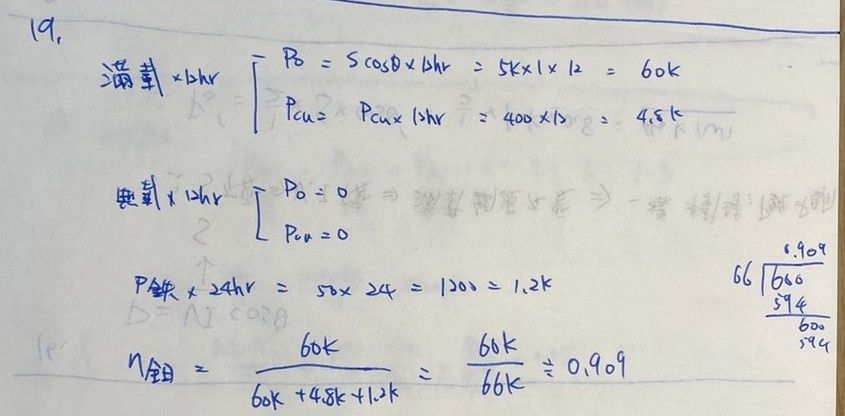 19.
滿載 ×12hr
Po = S cosθ × 12hr = 5K×1×12 = 60K
Pcu = Pcu × 12hr = 400 × 12 = 4.8K
無載 × 12hr
Po = 0
Pcu = 0
P鉄 × 24hr = 50 × 24 = 1200 = 1.2K
η全日 = 60K / 60K + 4.8K + 1.2K = 60K / 66K ≒ 0.909
0.909
66 600
594
600
594